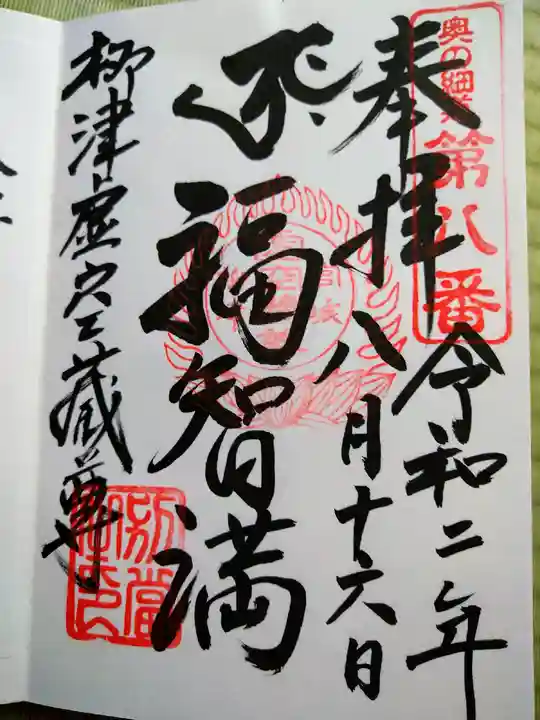 奥の細道
第八番
奉拝
令和二年
八月十六日
福智円満
柳津虚空蔵尊
別當